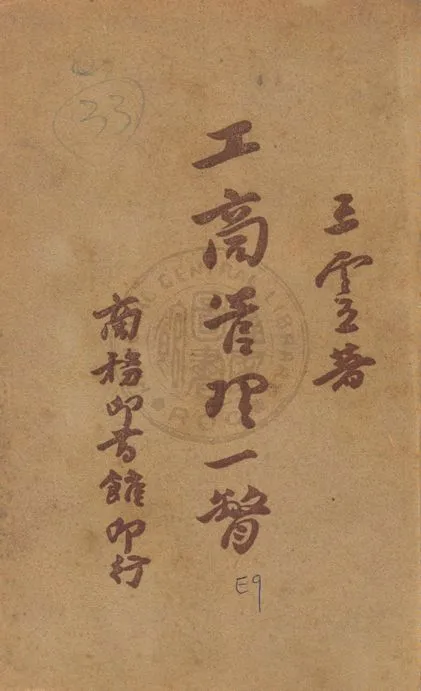 王雲五著
工商管理一瞥
商務印書館印行
33
E9
CENTRAL LIBRARY